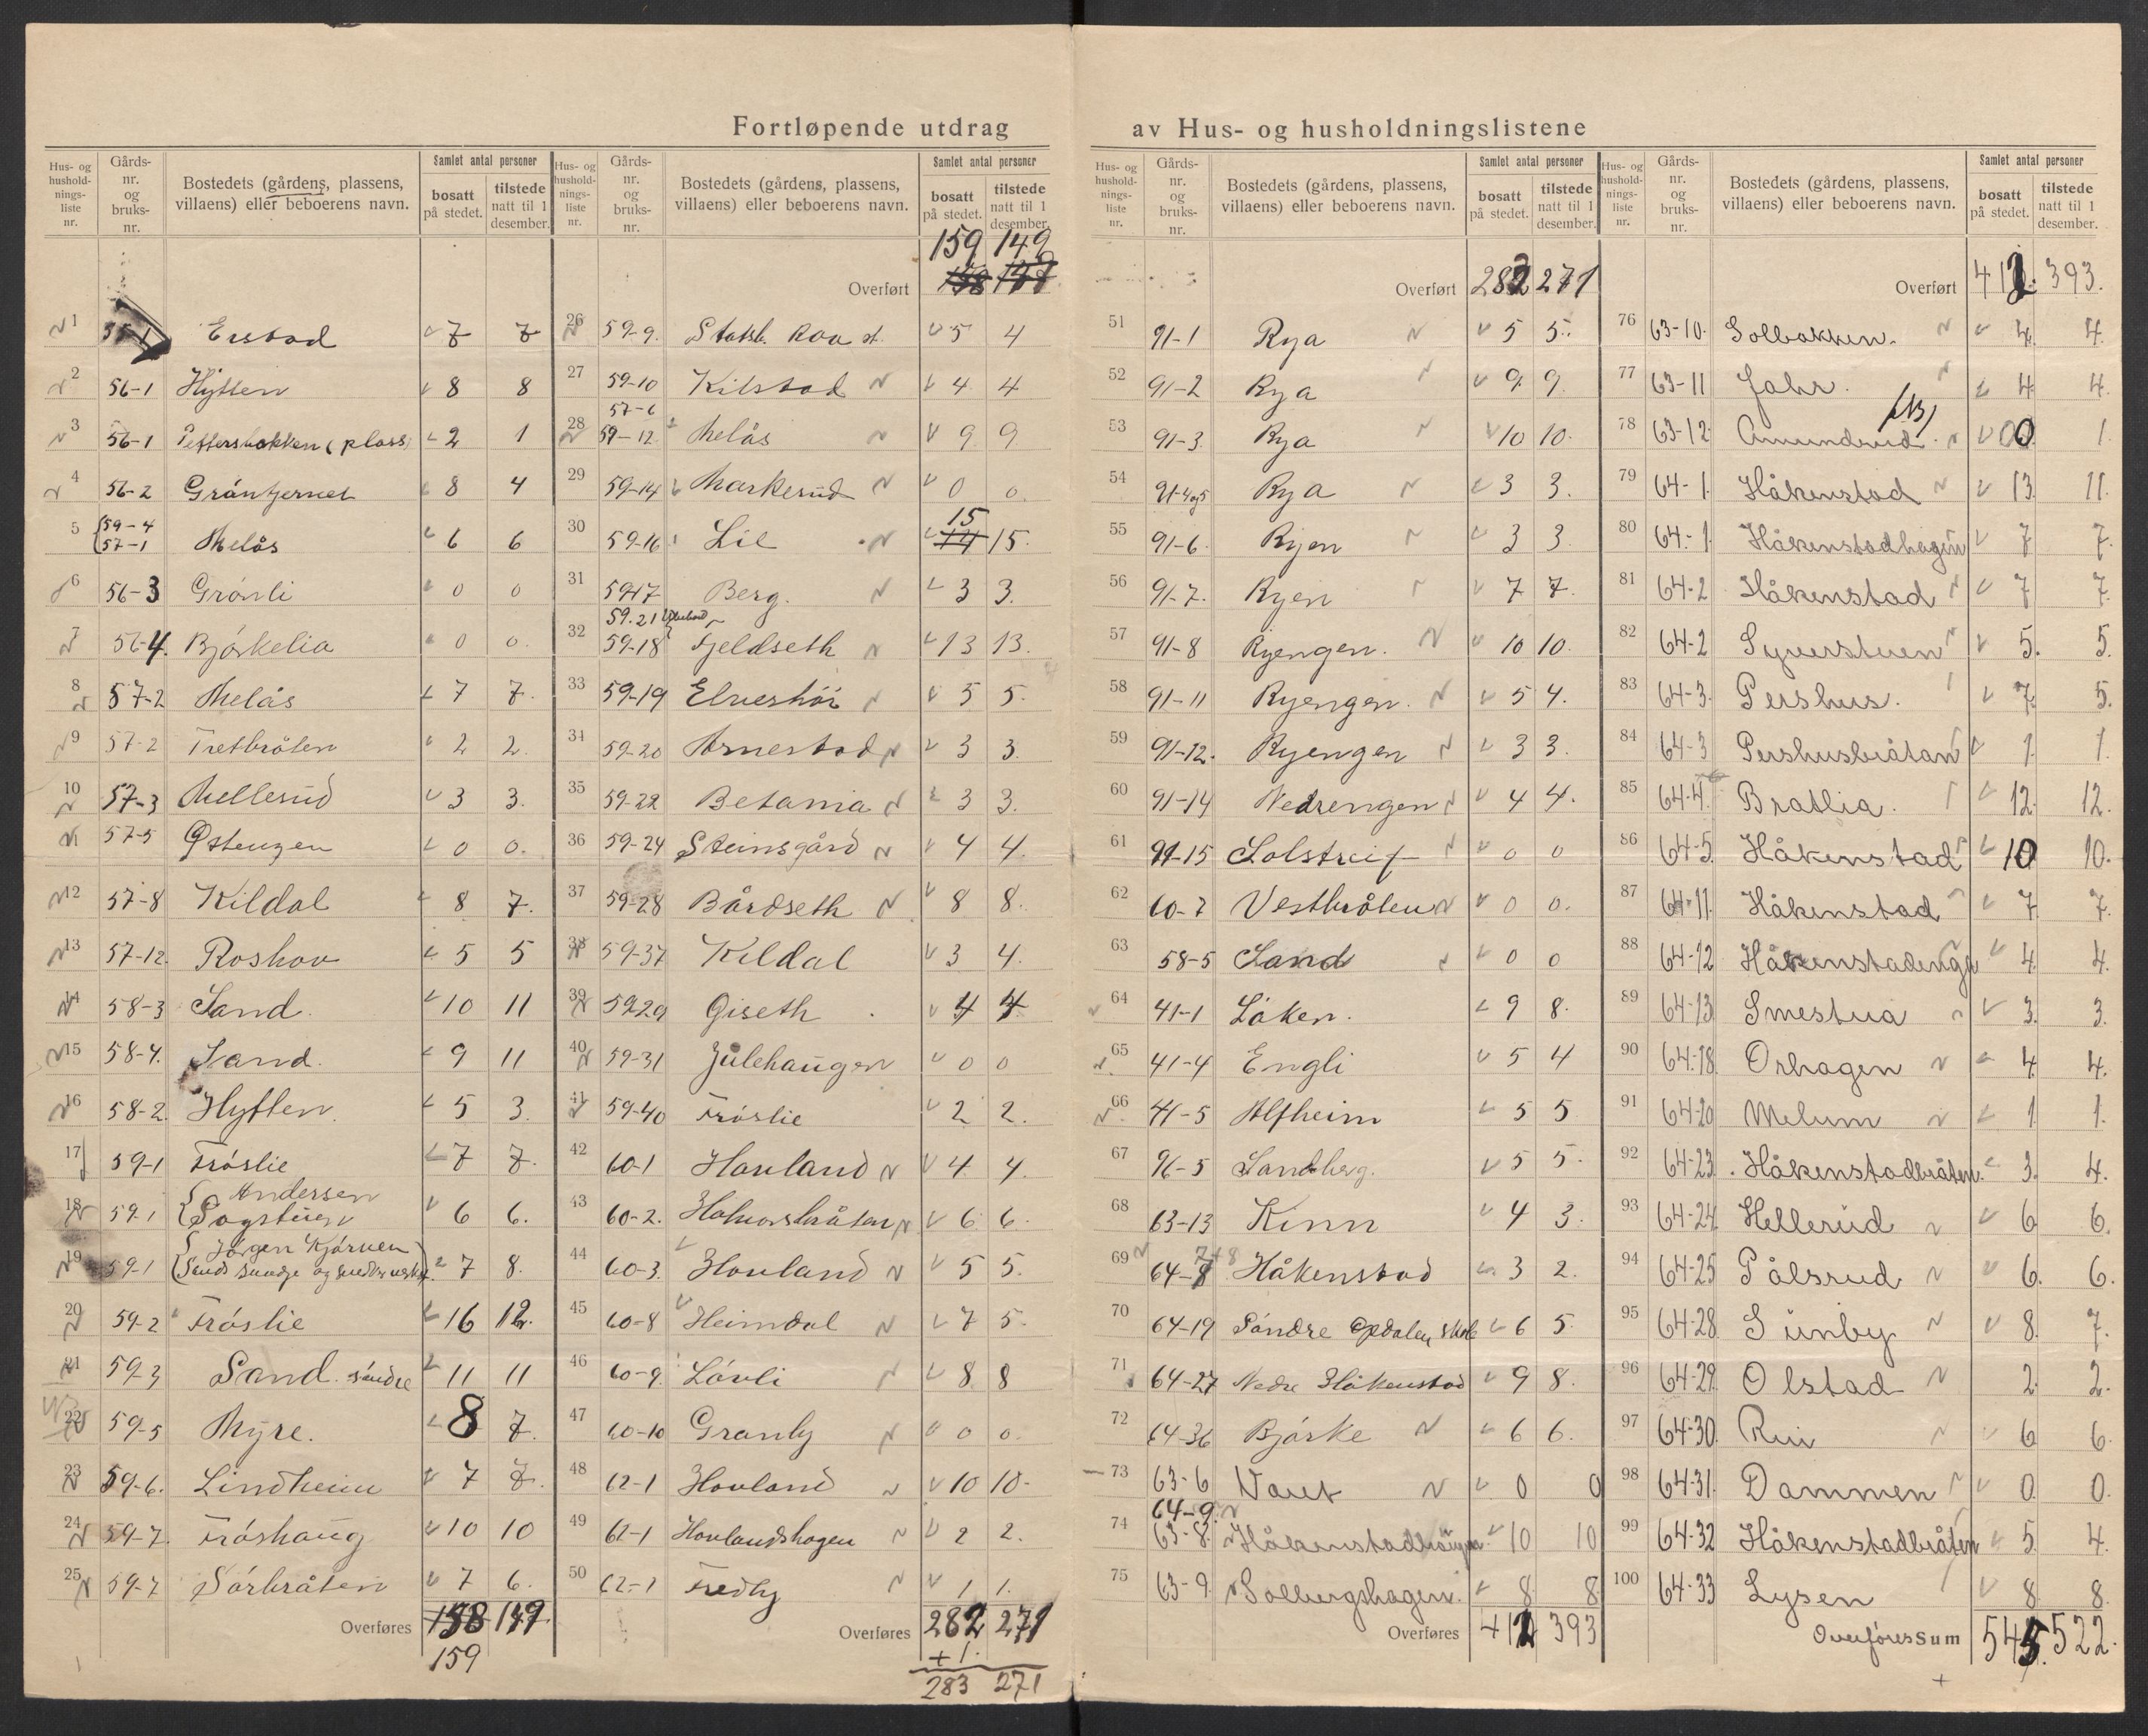 Fortløpende utdrag av Hus- og husholdningslistene
Hus- og husholdnings-liste nr. Gårds-nr. og bruks-nr. Bostedets (gårdens, plassens, villaens) eller beboerens navn. Samlet antal personer bosatt på stedet. tilstede natt til 1 desember.
1 Enstad 7 7
2 56-1 Hytten 8 8
3 56-1 Pettersbakken (plass) 2 1
4 56-2 Gråntjernet 8 4
5 59-4 57-1 Melås 6 6
6 56-3 Grönli 0 0
7 56-4. Björkelia 0 0.
8 57-2 Melås 7 7.
9 57-2 Tretbråten 2 2.
10 57-3 Mellerud 3 3.
57-5 Østengen 0 0.
12 57-8 Kildal 8 7.
13 57-12 Roshov 5 5
14 58-3 Sand. 10 11
15 58-4. Sand. 9 11
16 58-2 Hytten. 5 3.
17 59-1 Fröslie 7 7.
18 59-1 Andersen Sagstuen 6 6.
19 59-1 Jörgen Kjörven 7 8.
20 59-2 Fröslie 16 12.
21 59-3 Sand. söndre 11 11
22 59-5 Myre. 8 7.
23 59-6. Lindheim 7 7.
24 59-7. Fröshaug 10 10
25 59-7 Sörbråten 7 6.
Overføres 158 149.
159
Hus- og husholdnings-liste nr. Gårds-nr. og bruks-nr. Bostedets (gårdens, plassens, villaens) eller beboerens navn. Samlet antal personer bosatt på stedet. tilstede natt til 1 desember.
159 149
Overført 158
26 59-9. Statsb. Roa st. 5 4
27 59-10 Kilstad 4 4
57-6
28 59-12 Melås 9 9
29 59-14 Markerud 0 0.
15
30 59-16 Lie 14 15.
31 59-17 Berg. 3 3.
59.21
32 59-18 Fjeldseth 13 13.
33 59-19 Elveshöi 5 5.
34 59-20 Arnestad 3 3.
35 59-22 Betania 3 3.
36 59-24 Steinsgård 4 4.
37 59-28 Bårdseth 8 8.
38 59-37 Kildal 3 4.
39 59-29 Giseth. 4 4
40 59-31 Julehaugen 0 0
41 59-40 Fröslie 2 2.
42 60-1 Hovland 4 4.
43 60-2. Halvorsbråten 6 6.
44 60-3. Hovland 5 5.
45 60-8 Heimdal 7 5.
46 60-9. Lövli 8 8
47 60-10 Granly 0 0.
48 62-1 Hovland 10 10.
49 62-1 Hovlandshagen 2 2.
50 62-1 Fredly 1 1.
Overføres 282 271
+ 1.
283 271
Hus- og husholdnings-liste nr. Gårds-nr. og bruks-nr. Bostedets (gårdens, plassens, villaens) eller beboerens navn. Samlet antal personer bosatt på stedet. tilstede natt til 1 desember.
Overført 283 271
51 91-1 Rya 5 5.
52 91-2 Rya 9 9.
53 91-3 Rya 10 10.
54 91-4og5 Rya 3 3.
55 91-6 Ryen 3 3.
56 91-7. Ryen 7 7.
57 91-8 Ryengen. 10 10.
58 91-11 Ryengen. 5 4.
59 91-12. Ryengen 3 3.
60 91-14 Nedrengen 4 4.
61 91-15 Solstreif 0 0
62 60-7 Vestbråten 0 0.
63 58-5 Sand 0 0
64 41-1 Löken. 9 8.
65 41-4 Engli 5 4
66 41-5 Alfheim 5 5
67 96-5 Sandberg. 5 5.
68 63-13 Kinn 4 3.
69 64-8 7+8 Håkenstad 3 2.
70 64-19 Söndre Opdalen skole 6 5.
71 64-27 Nedre Håkenstad 9 8.
72 64-36 Björke 6 6.
73 63-6 Vaut 0 0
64-9.
74 63-8. Håkenstadhaugen. 10 10
75 63-9. Solbergshagen. 8 8
Overføres 412 393
Hus- og husholdnings-liste nr. Gårds-nr. og bruks-nr. Bostedets (gårdens, plassens, villaens) eller beboerens navn. Samlet antal personer bosatt på stedet. tilstede natt til 1 desember.
Overført 412. 393.
76 63-10. Solbakken. 4. 4.
77 63-11 Jahr. 4 4.
78 63-12 Amundrud. 0 1.
79 64-1 Håkenstad 13. 11.
80 64-1 Håkenstadhagen 7 7.
81 64-2 Håkenstad 7 7.
82 64-2 Syverstuen 5. 5.
83 64-3. Pershus. 7. 5.
84 64-3 Pershusbråtan 1. 1.
85 64-4. Bratlia. 12. 12.
86 64-5. Håkenstad 10 10.
87 64-11. Håkenstad 7. 7.
88 64-12 Håkenstadenga 4. 4.
89 64-13 Smestua 3. 3.
90 64-18. Orhagen 4. 4.
91 64-20 Melum 1. 1.
92 64-23. Håkenstadbråten. 3. 4.
93 64-24 Hellerud 6 6.
94 64-25 Pålsrud 6. 6.
95 64-28. Sünby 8. 7.
96 64-29. Olstad 2. 2.
97 64-30. Rui 6 6.
98 64-31. Dammen 0. 0.
99 64-32 Håkenstadbråten 5. 4.
100 64-33 Lysen 8. 8.
Overføres Sum 545. 522.